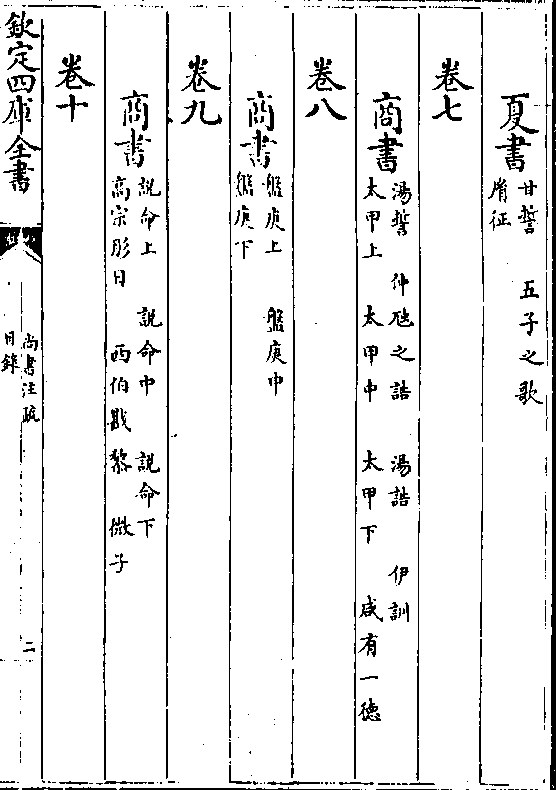 夏書
甘誓　五子之歌
胤征
卷七
商書
湯誓　仲虺之誥　湯誥　伊訓
太甲上　太甲中　太甲下　咸有一德
卷八
商書
盤庚上　盤庚中
盤庚下
卷九
商書
說命上　說命中　說命下
高宗肜日　西伯戡黎　微子
卷十
欽定四庫全書
尚書注疏
目錄
二